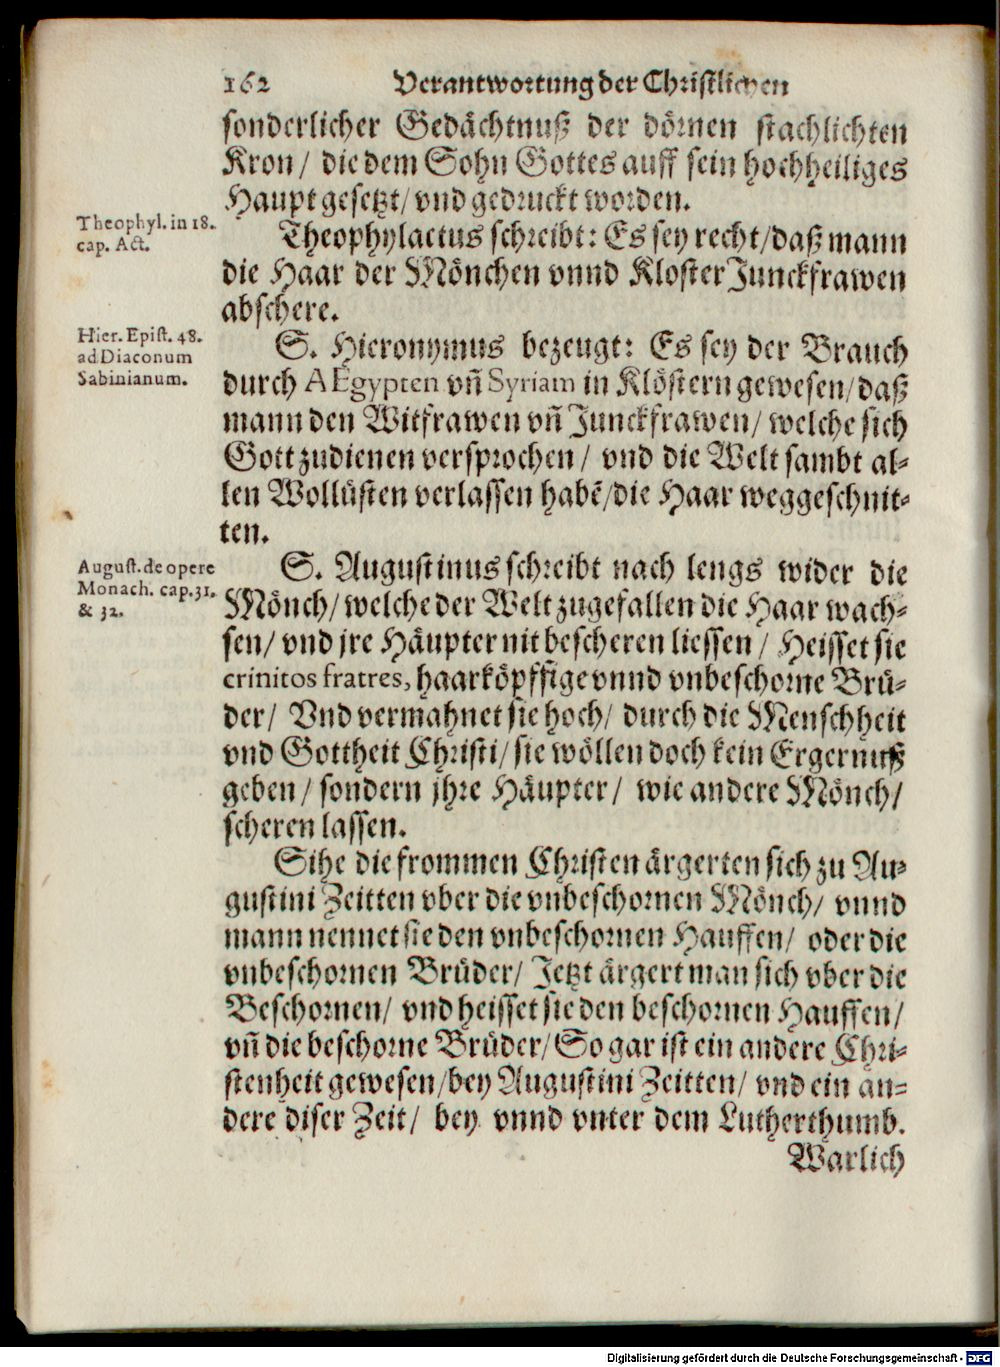 162 Verantwortung der Christlichen
sonderlicher Gedächtnuß der dörnen stachlichten
Kron/ die dem Sohn Gottes auff sein hochheiliges
Haupt gesetzt/ vnd gedruckt worden.
Theophyl. in 18.
cap. Act.
Theophylactus schreibt: Es sey recht/daß mann
die Haar der Mönchen vnnd Kloster Junckfrawen
abschere.
Hier. Epist. 48.
ad Diaconum
Sabinianum.
S. Hieronymus bezeugt: Es sey der Brauch
durch AEgypten vñ Syriam in Klöstern gewesen/daß
mann den Witfrawen vñ Junckfrawen/ welche sich
Gott zudienen versprochen/ vnd die Welt sambt al-
len Wollüsten verlassen habẽ/die Haar weggeschnit-
ten.
August. de opere
Monach. cap. 31.
& 32.
S. Augustinus schreibt nach lengs wider die
Mönch/ welche der Welt zugefallen die Haar wach-
sen/ vnd jre Häupter nit bescheren liessen/ Heisset sie
crinitos fratres, haarköpffige vnnd vnbeschorne Brü-
der/ Vnd vermahnet sie hoch/ durch die Menschheit
vnd Gottheit Christi/ sie wöllen doch kein Ergernuß
geben/ sondern jhre Häupter/ wie andere Mönch/
scheren lassen.
Sihe die frommen Christen ärgerten sich zu Au-
gustini Zeitten vber die vnbeschornen Mönch/ vnnd
mann nennet sie den vnbeschornen Hauffen/ oder die
vnbeschornen Brüder/ Jetzt ärgert man sich vber die
Beschornen/ vnd heisset sie den beschornen Hauffen/
vñ die beschorne Brüder/ So gar ist ein andere Chri-
stenheit gewesen/bey Augustini Zeitten/ vnd ein an-
dere diser Zeit/ bey vnnd vnter dem Lutherthumb.
Warlich
Digitalisierung gefördert durch die Deutsche Forschungsgemeinschaft - DFG